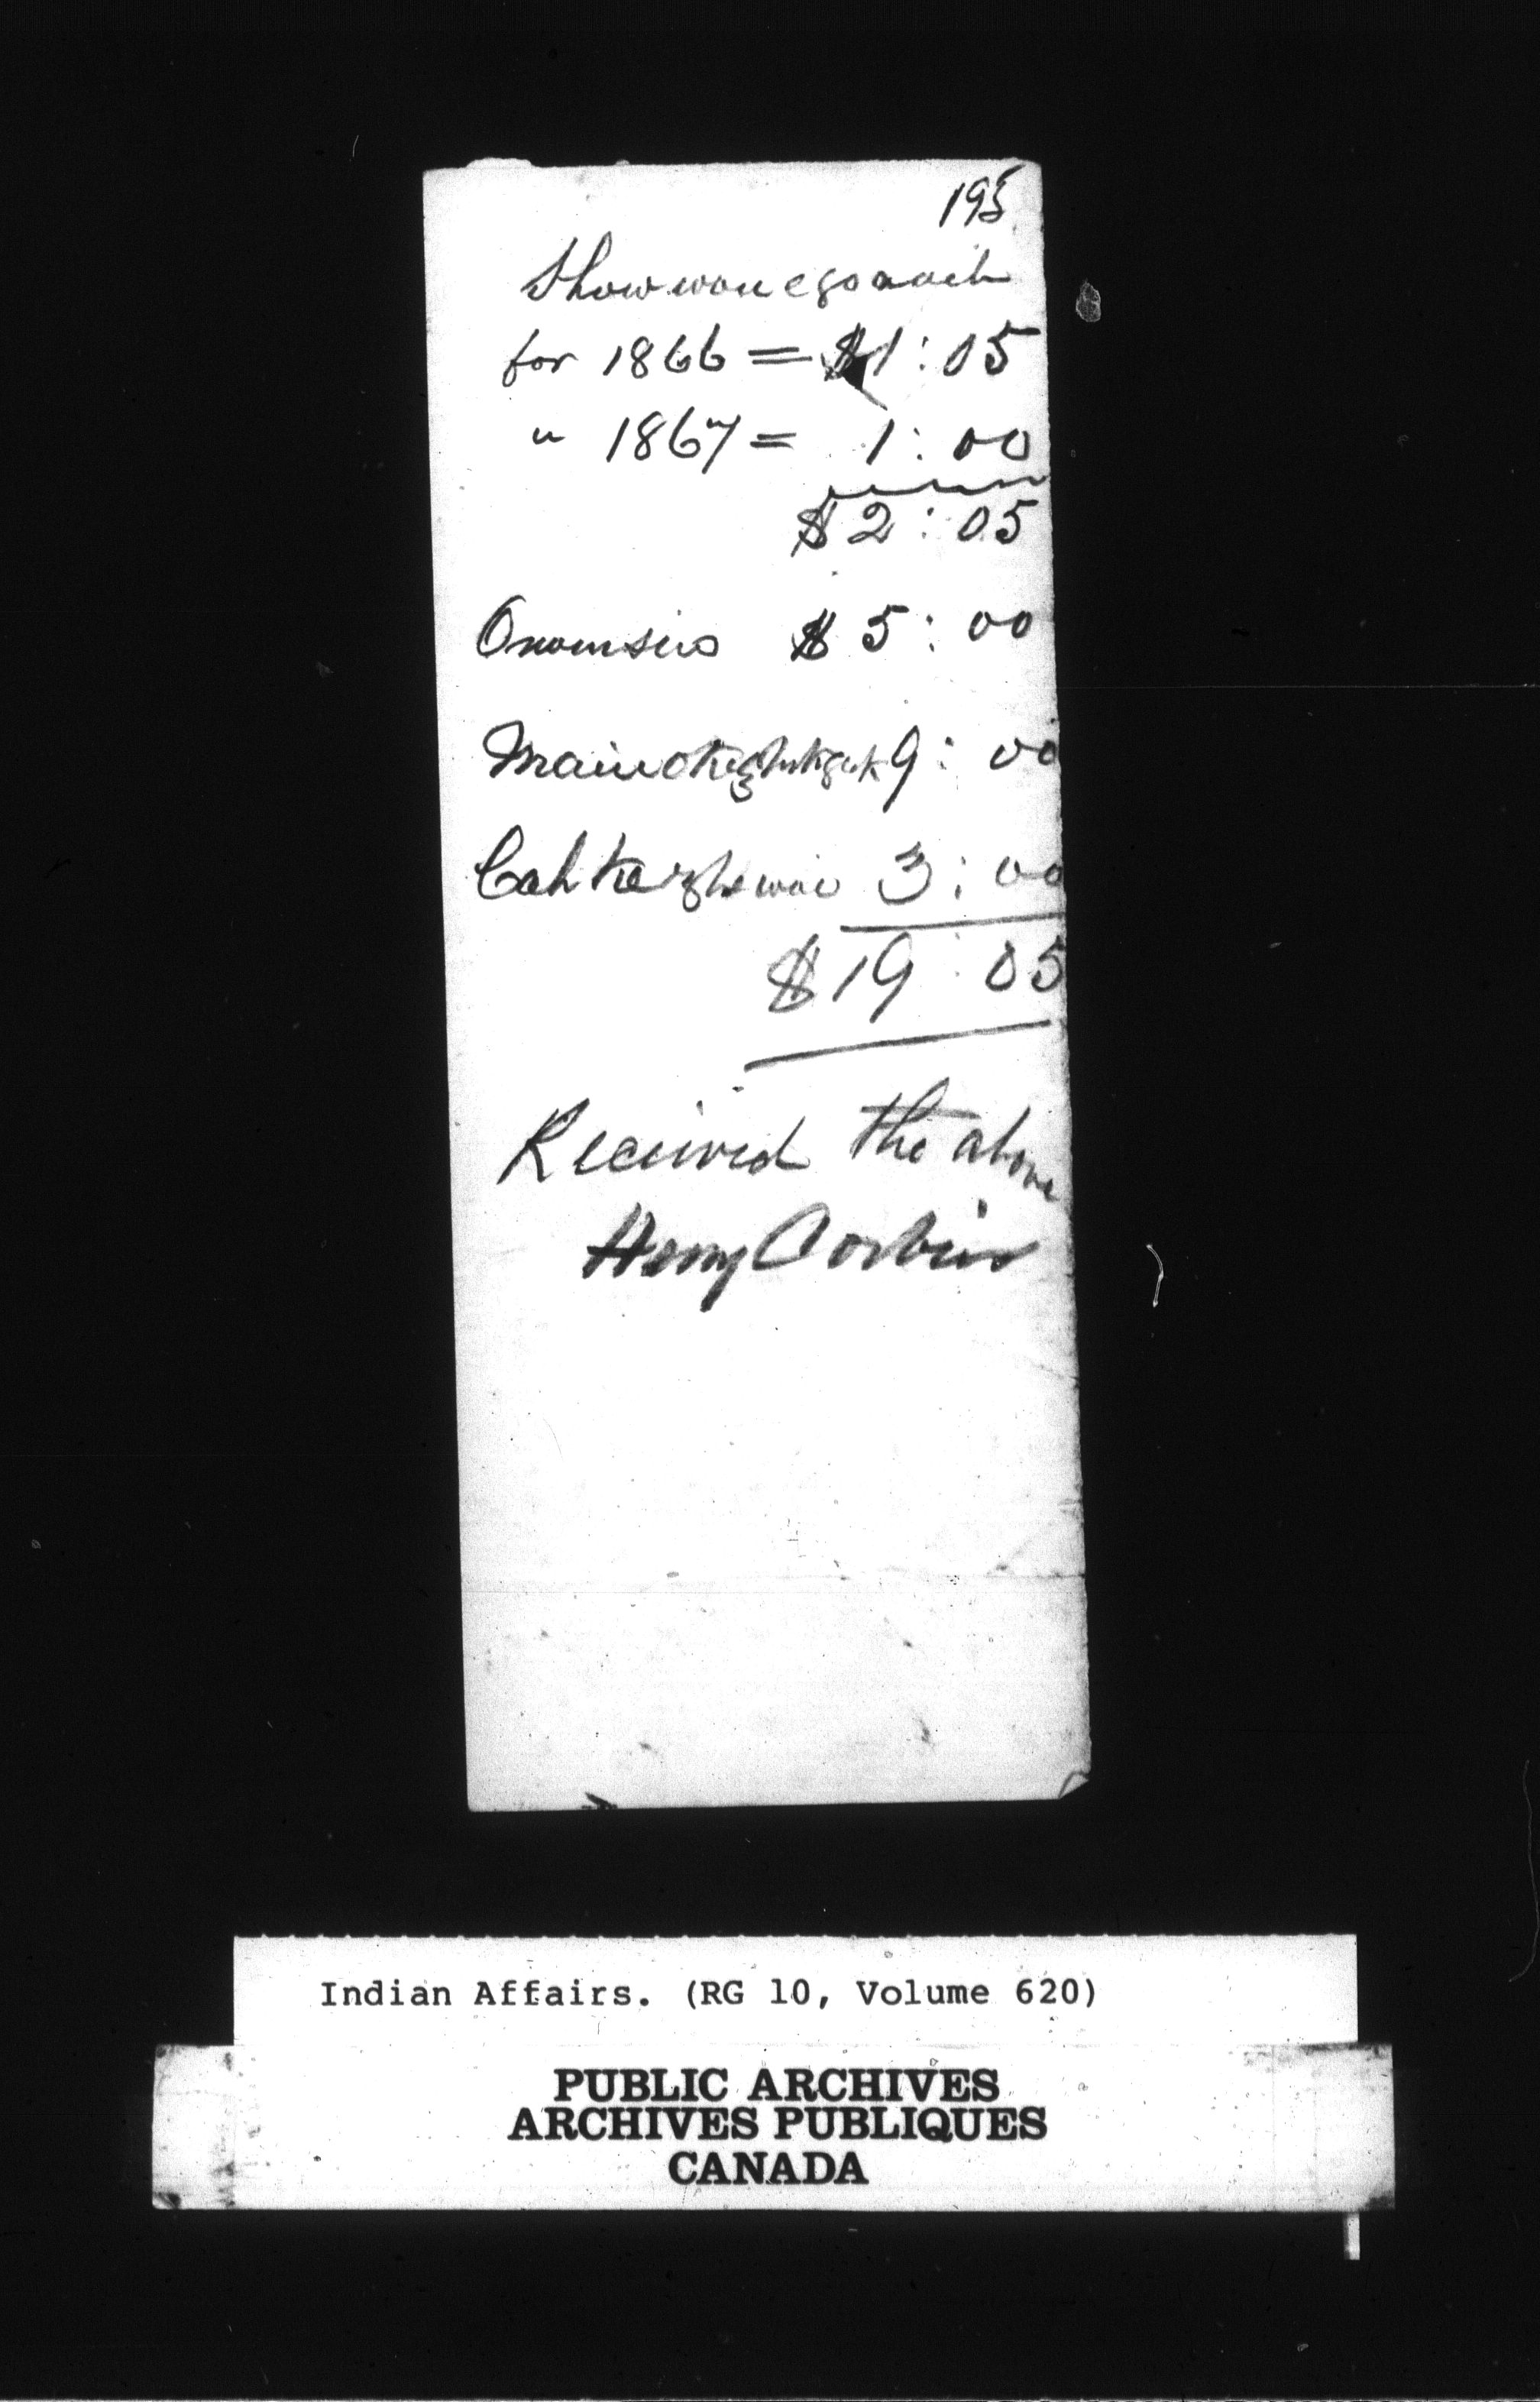 195
for 1866 = $1:05
" 1867 = 1:00
$2:05
$5:00
9:00
3:00
$19:05
Received the above
Henry Corbier
Indian Affairs. (RG 10, Volume 620)
PUBLIC ARCHIVES
ARCHIVES PUBLIQUES
CANADA